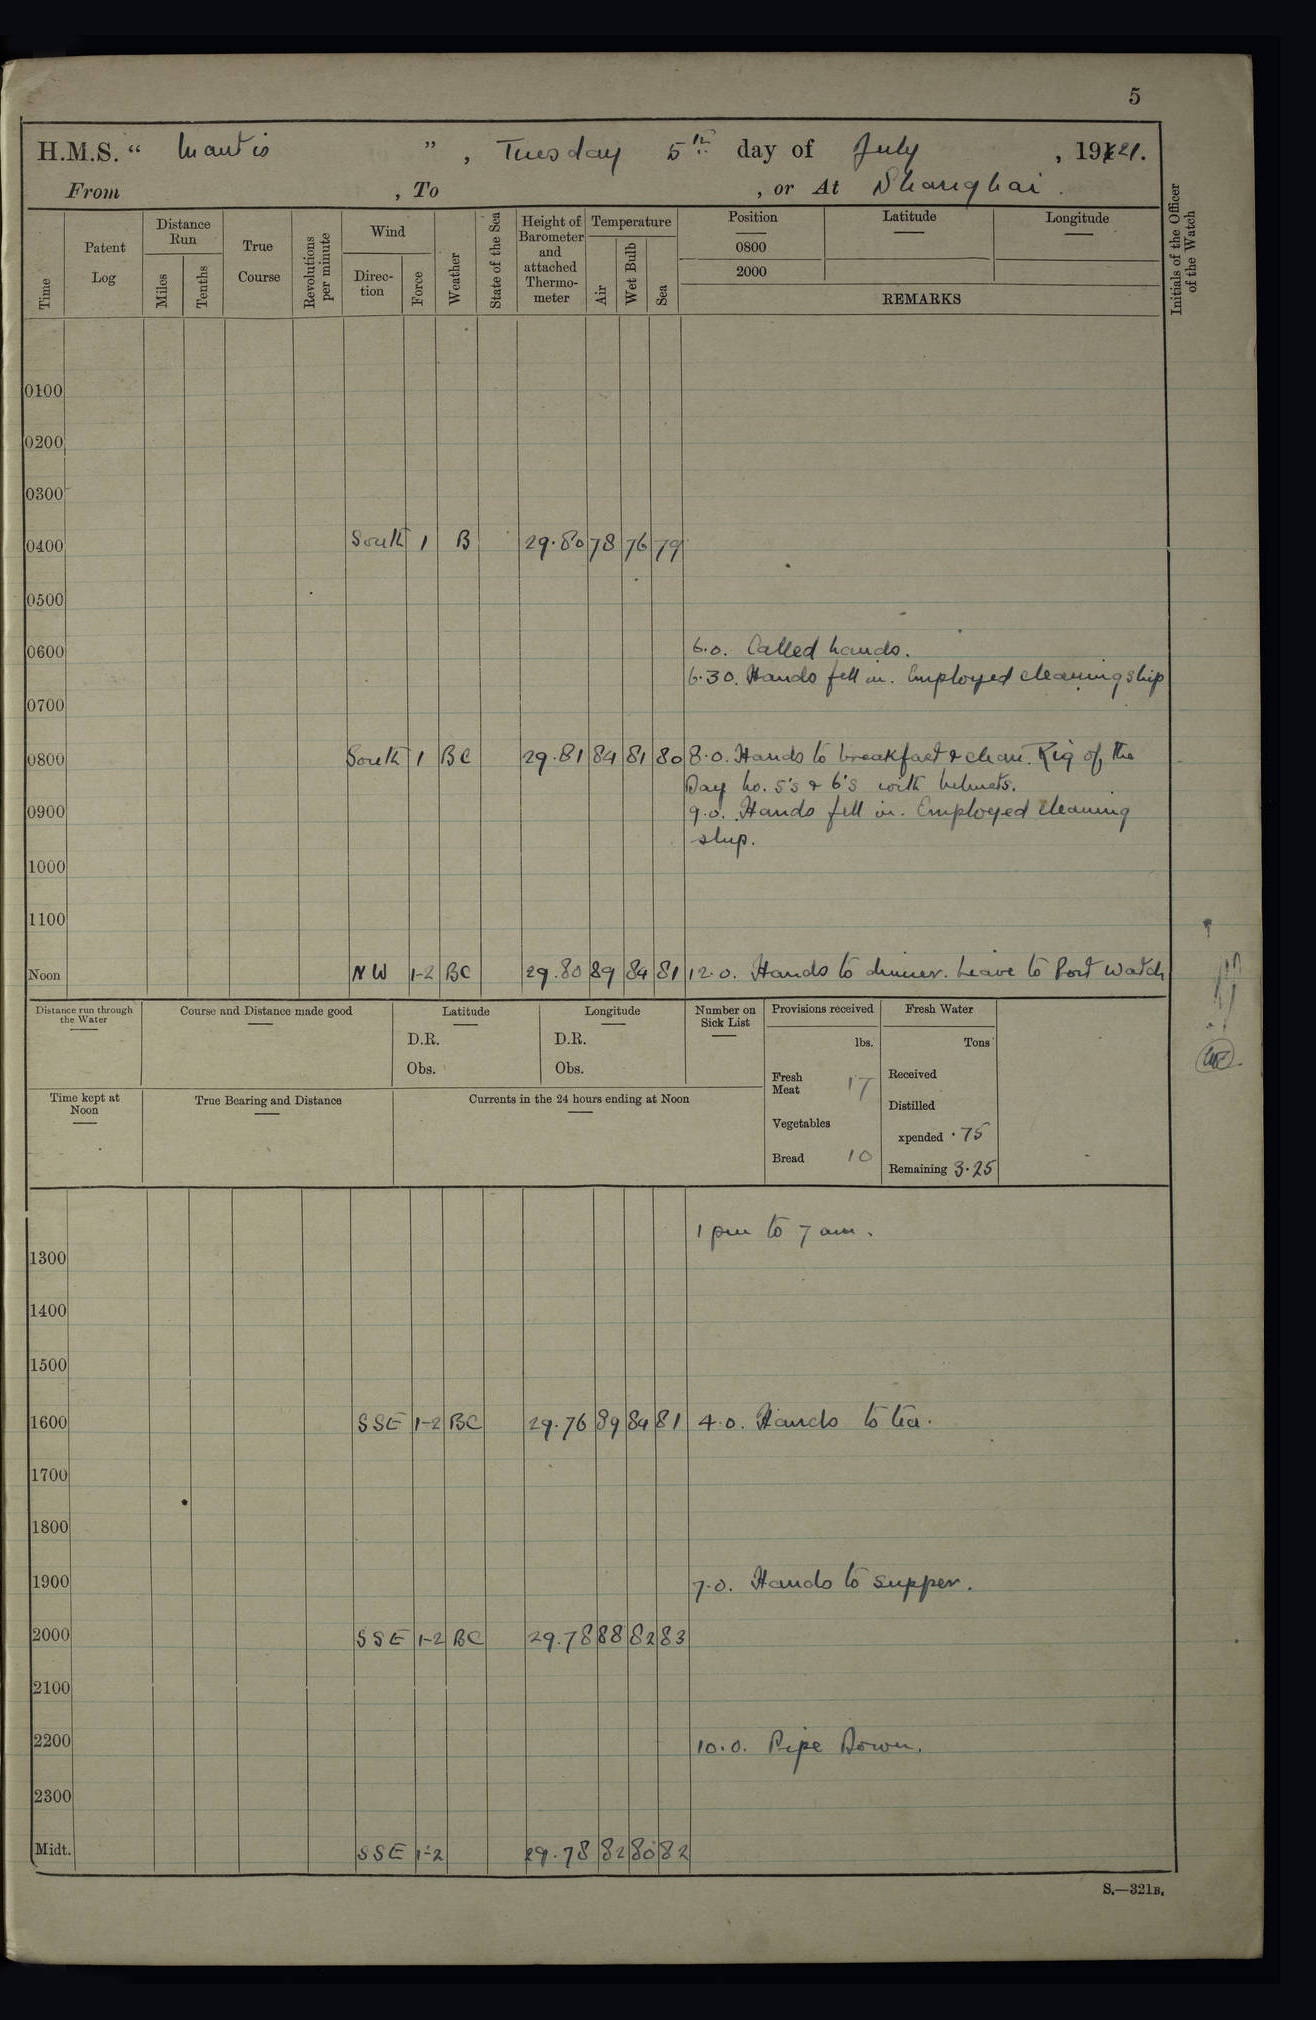 5
H.M.S. “ Mantis ” , Tuesday 5th day of July , 1921.
From , To , or At Shanghai .
Time
Patent Log
Distance Run
Miles
Tenths
True Course
Revolutions per minute
Wind
Direc- tion
Force
Weather
State of the Sea
Height of Barometer and attached Thermo- meter
Temperature
Air
Wet Bulb
Sea
Position
0800
2000
Latitude
Longitude
REMARKS
Initials of the Officer of the Watch
0100
0200
0300
0400 South 1 B 29.80 78 76 79
0500
0600 6.0. Called hands.
6.30. Hands fell in. Employed cleaning ship
0700
0800 South 1 BC 29.81 84 81 80 8.0. Hands to breakfast & clean. Rig of the
Day No. 5's & 6's with helmets.
0900 9.0. Hands fell in. Employed cleaning
ship.
1000
1100
Noon NW 1-2 BC 29.80 89 84 81 12.0. Hands to dinner. Leave to Port Watch
Distance run through the Water
Course and Distance made good
Latitude
D.R.
Obs.
Longitude
D.R.
Obs.
Number on Sick List
Provisions received
lbs.
Fresh Meat 17
Vegetables
Bread 10
Fresh Water
Tons
Received
Distilled
xpended .75
Remaining 3.25
Time kept at Noon
True Bearing and Distance
Currents in the 24 hours ending at Noon
1 pm to 7 am.
1300
1400
1500
1600 SSE 1-2 BC 29.76 89 84 81 4.0. Hands to tea.
1700
1800
1900 7.0. Hands to supper.
2000 SSE 1-2 BC 29.78 88 82 83
2100
2200 10.0. Pipe Down.
2300
Midt. SSE 1-2 29.78 82 80 82
S.—321B.